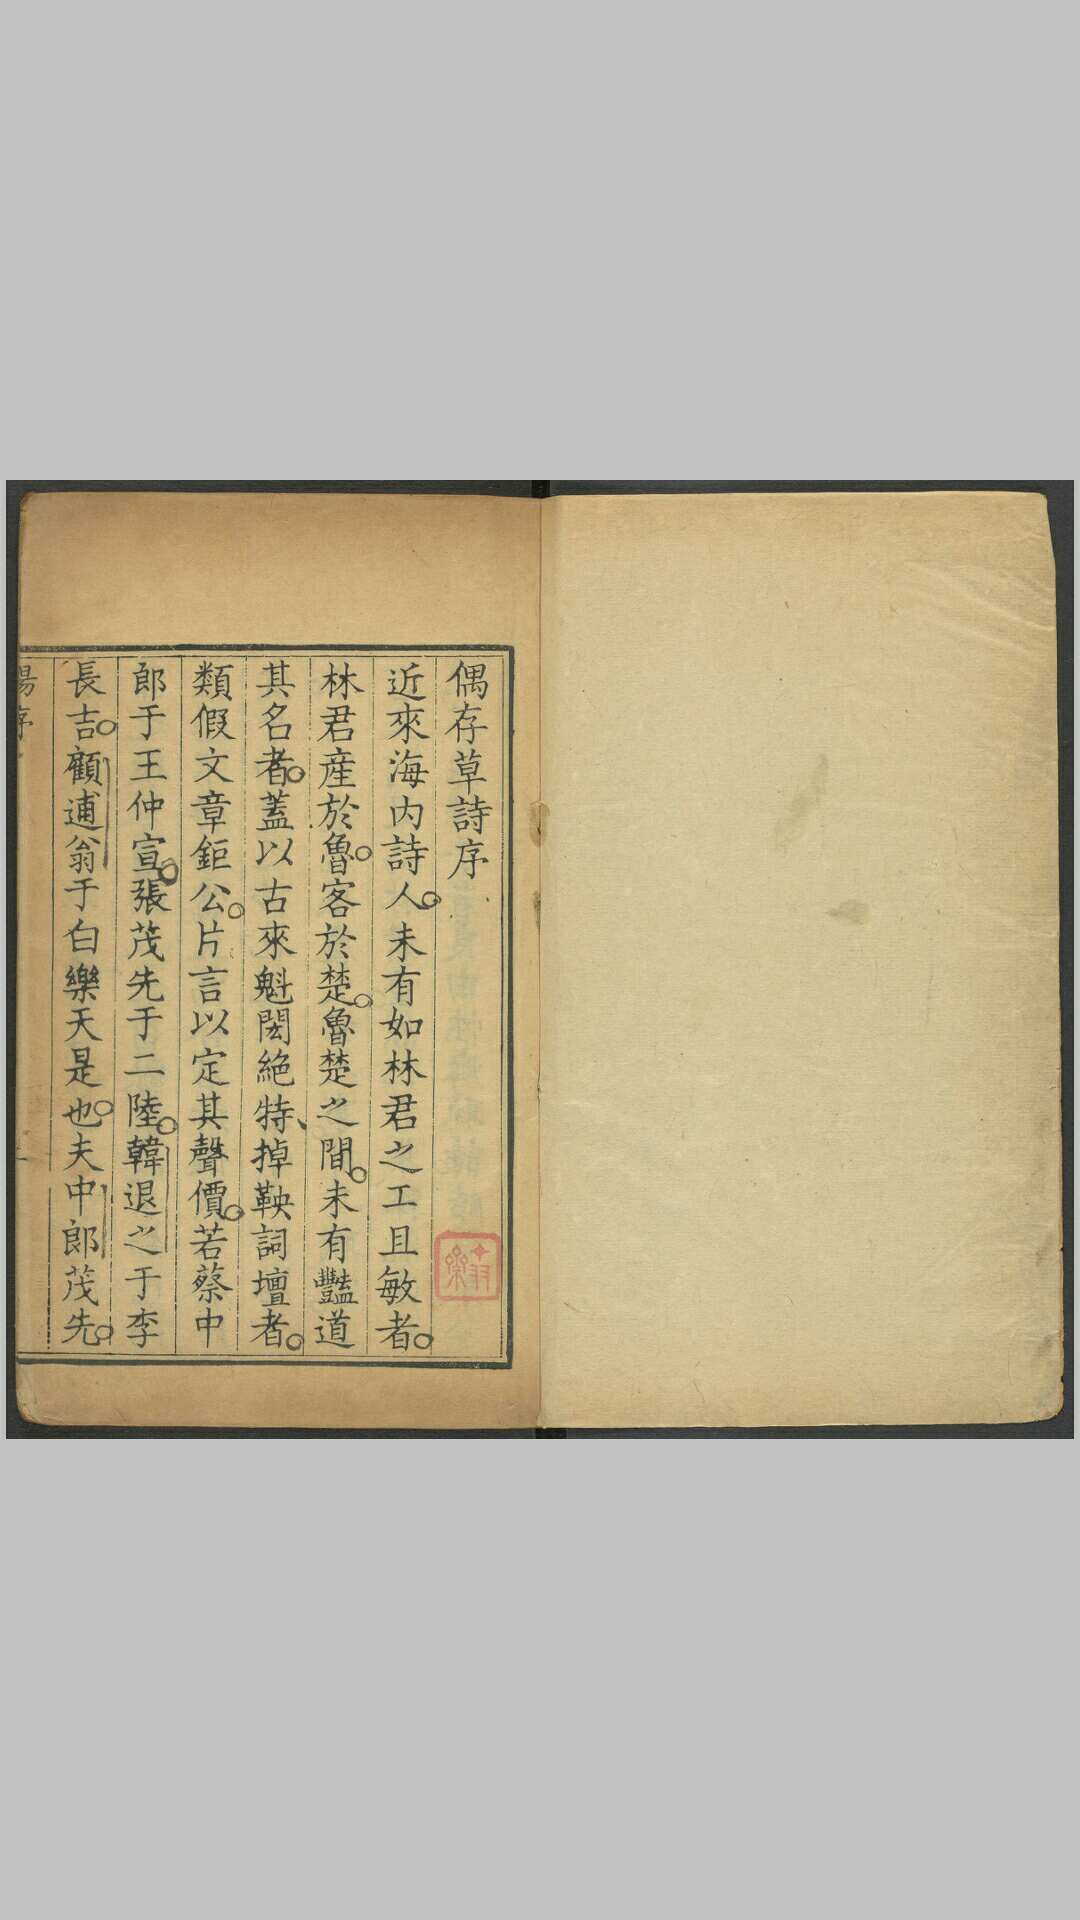 偶存草詩序
近來海内詩人未有如林君之工且敏者
林君産於魯客於楚魯楚之間未有豔道
其名者蓋以古來魁閎絶特掉鞅詞壇者
類假文章鉅公片言以定其聲價若蔡中
郎于王仲宣張茂先于二陸韓退之于李
長吉顧逋翁于白樂天是也夫中郎茂先
楊序